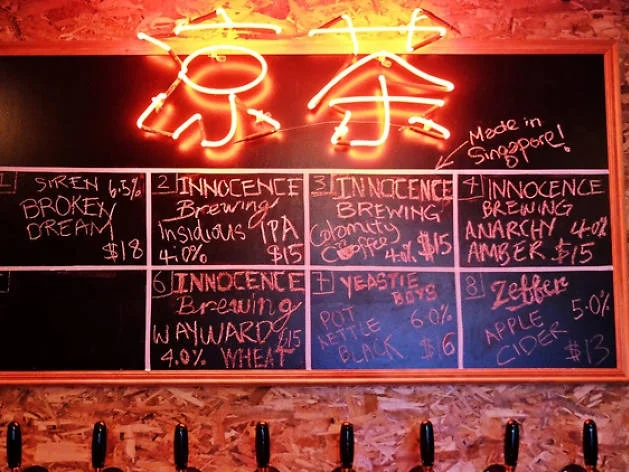 凉茶
Made in
Singapore!
1 SIREN 6.5%
BROKEN
DREAM
$18
2 INNOCENCE
Brewing
Insidious IPA
4.0% $15
3 INNOCENCE
BREWING
Calamity
Coffee 4.0% $15
4 INNOCENCE
BREWING
ANARCHY 4.0%
AMBER $15
6 INNOCENCE
Brewing
WAYWARD $15
4.0% WHEAT
7 YEASTIE
BOYS
POT 6.0%
KETTLE
BLACK
8 Zeffer
5.0%
APPLE
CIDER $13